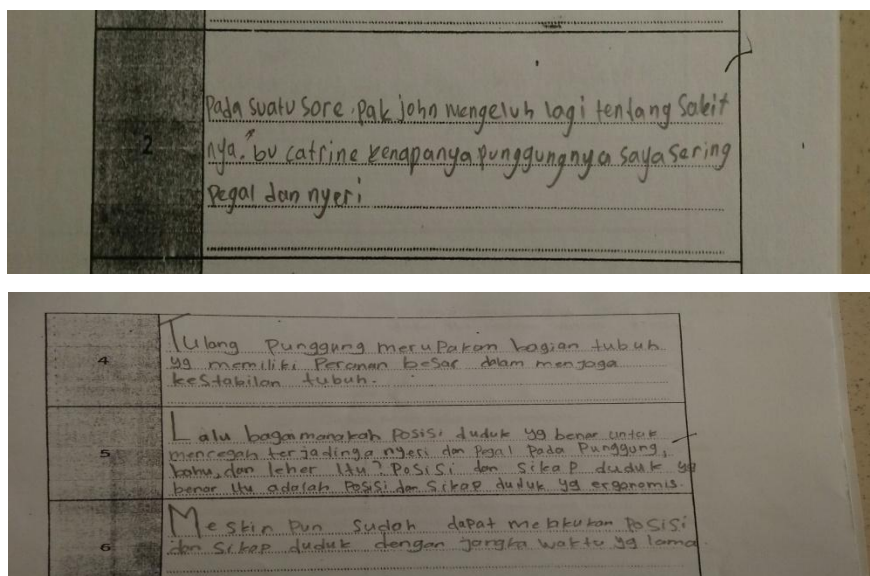 2
Pada suatu sore, pak john mengeluh lagi tentang Sakit
nya. "bu catrine kenapanya punggungnya saya sering
pegal dan nyeri
4
Tulang Punggung merupakan bagian tubuh
yg memiliki Peranan besar dalam menjaga
keStabilan tubuh.
5
Lalu bagaimanakah Posisi duduk yg benar untuk
mencegah terjadinga nyeri dan Pegal Pada Punggung,
bahu, dan leher Itu? PoSiSi dan sikap duduk yg
benar Itu adalah Posisi dan Sikap duduk yg ergonomis.
6
Meskin Pun Sudah dapat melakukan PoSiSi
dan Sikap duduk dengan jangka waktu yg lama.